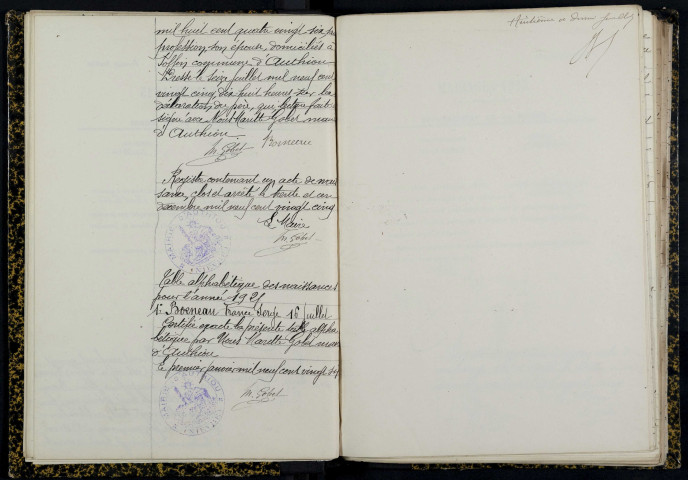 mil huit cent quatre vingt six
profession son épouse, domiciliés à
commune d'Authiou
le seize juillet mil neuf cent
vingt cinq, dix huit heures sur la
déclaration du père, qui lecture faite
signé avec Nous Gobet maire
d'Authiou
M. Gobet
Registre contenant un acte de nais
sance, clos et arrêté le trente et un
décembre mil neuf cent vingt cinq
Le Maire
M. Gobet
Table alphabétique des naissances
pour l'année 1925
1° 16 juillet
Certifiée exacte la présente table alpha
bétique par Nous Gobet maire
d'Authiou
Le premier janvier mil neuf cent vingt six
M. Gobet